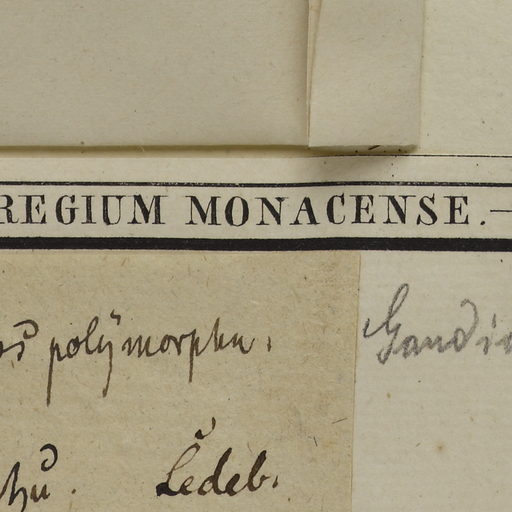 REGIUM MONACENSE.—
polÿmorpha.
Gaudi
Ledeb.